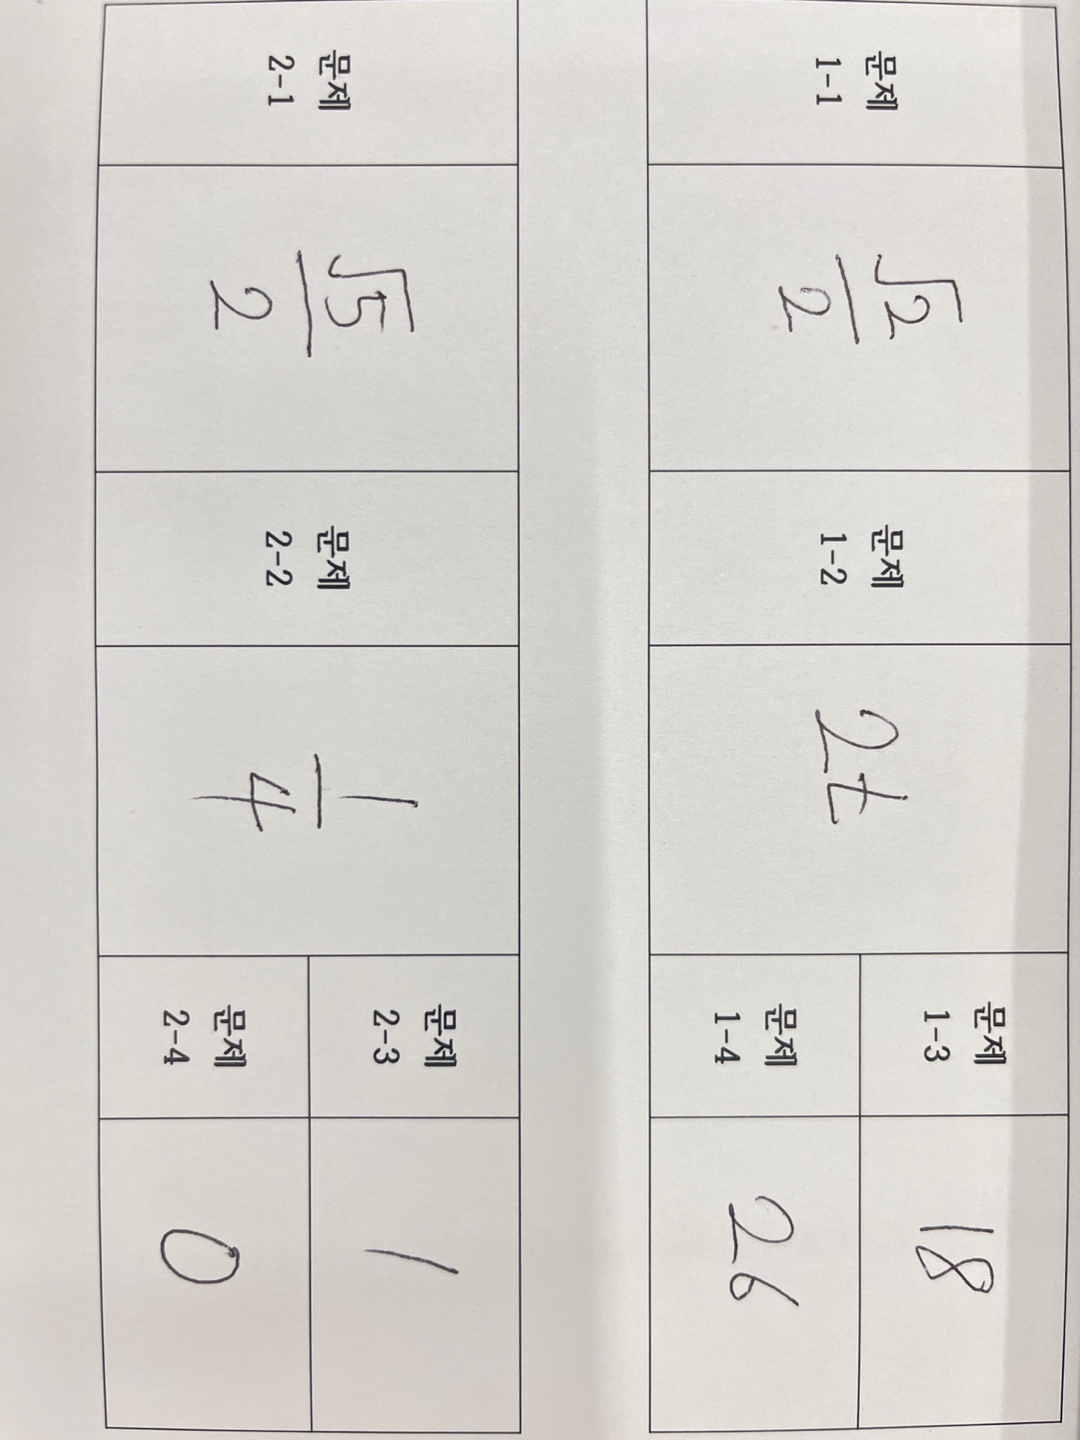 문제
1-1
√2/2
문제
1-2
2t
문제
1-3
18
문제
1-4
26
문제
2-1
√5/2
문제
2-2
1/4
문제
2-3
1
문제
2-4
0